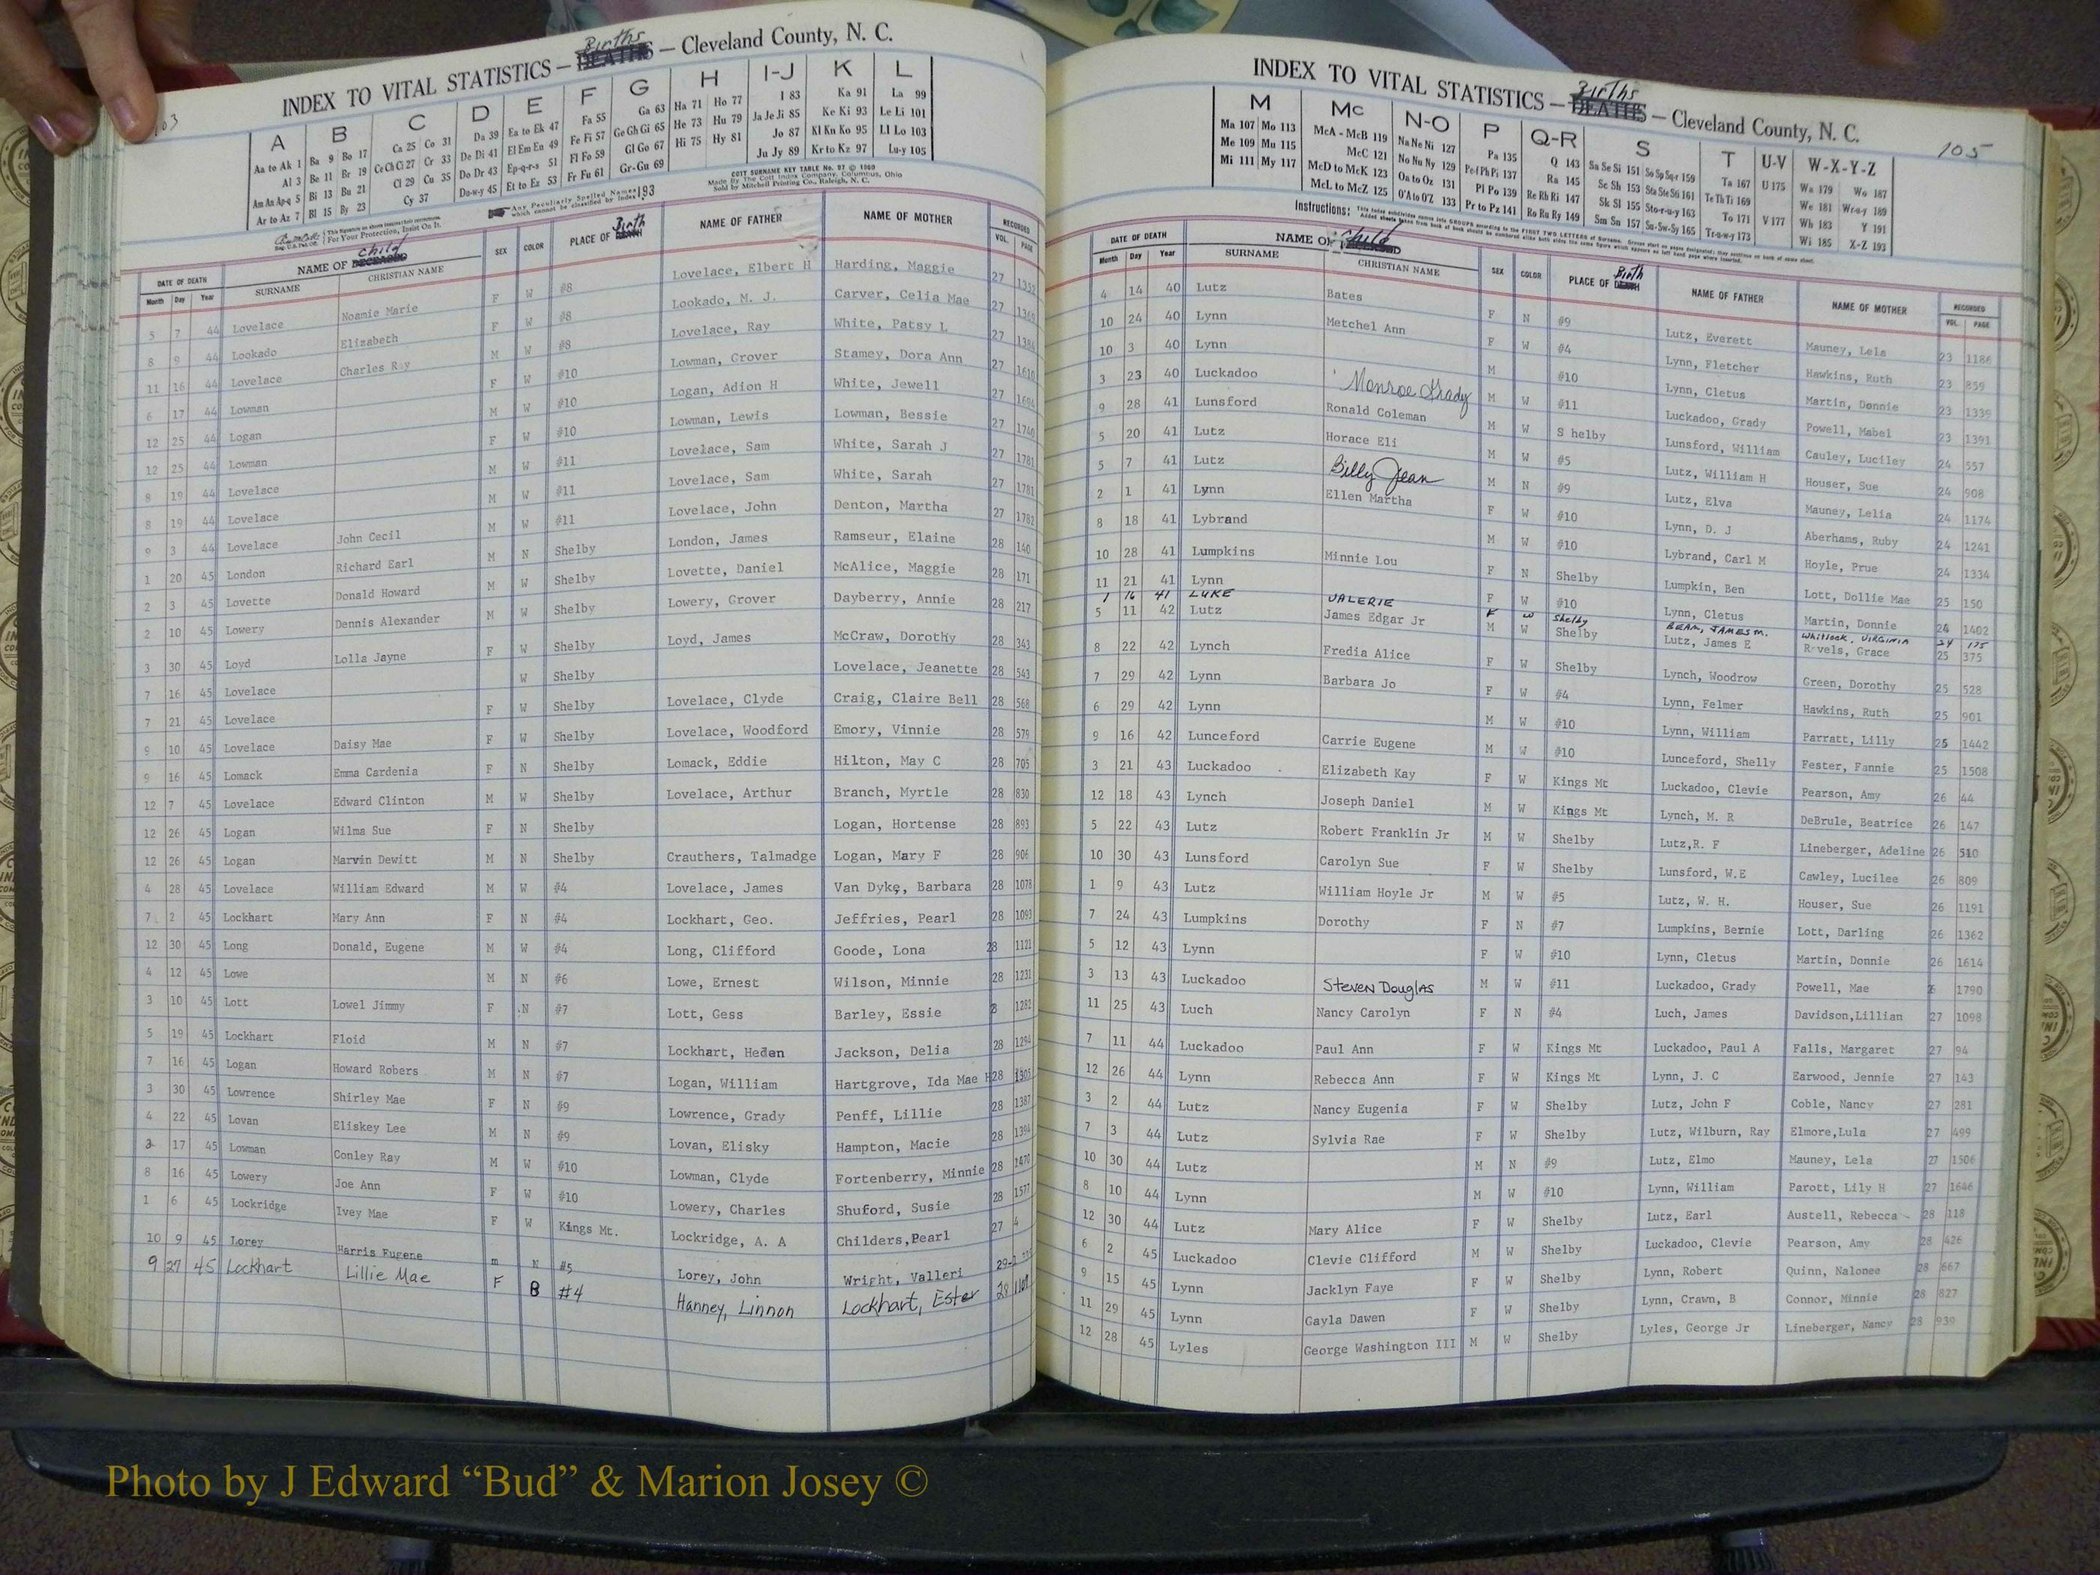 103
INDEX TO VITAL STATISTICS — Births DEATHS — Cleveland County, N. C.
A B C D E F G H I-J K L
Aa to Ak 1 Ba 9 Bo 17 Ca 25 Co 31 Da 39 Ea to Ek 47 Fa 55 Ga 63 Ha 71 Ho 77 I 83 Ka 91 La 99
Al 3 Be 11 Br 19 Ce Ch Ci 27 Cr 33 De Di 41 El Em En 49 Fe Fi 57 Ge Gh Gi 65 He 73 Hu 79 Ja Je Ji 85 Ke Ki 93 Le Li 101
Am An Ap-q 5 Bi 13 Bu 21 Cl 29 Cu 35 Do Dr 43 Ep-q-r-s 51 Fl Fo 59 Gl Go 67 Hi 75 Hy 81 Jo 87 Kl Kn Ko 95 Ll Lo 103
Ar to Az 7 Bl 15 By 23 Cy 37 Du-w-y 45 Et to Ez 53 Fr Fu 61 Gr-Gu 69 Ju Jy 89 Kr to Kz 97 Lu-y 105
COTT SURNAME KEY TABLE No. 97 © 1969
Made By The Cott Index Company, Columbus, Ohio
Sold by Mitchell Printing Co., Raleigh, N. C.
Any Peculiarly Spelled Names which cannot be classified by Index 193
For Your Protection, Insist On It.
DATE OF DEATH NAME OF Child DECEASED SEX COLOR PLACE OF Birth DEATH NAME OF FATHER NAME OF MOTHER RECORDED
Month Day Year SURNAME CHRISTIAN NAME VOL. PAGE
5 7 44 Lovelace Noamie Marie F W #8 Lovelace, Elbert H Harding, Maggie 27 1352
8 9 44 Lookado Elizabeth F W #8 Lookado, M. J. Carver, Celia Mae 27 1369
11 16 44 Lovelace Charles Ray M W #8 Lovelace, Ray White, Patsy L 27 1384
6 17 44 Lowman F W #10 Lowman, Grover Stamey, Dora Ann 27 1610
12 25 44 Logan M W #10 Logan, Adion H White, Jewell 27 1694
12 25 44 Lowman F W #10 Lowman, Lewis Lowman, Bessie 27 1740
8 19 44 Lovelace M W #11 Lovelace, Sam White, Sarah J 27 1781
8 19 44 Lovelace M W #11 Lovelace, Sam White, Sarah 27 1781
9 3 44 Lovelace John Cecil M W #11 Lovelace, John Denton, Martha 27 1782
1 20 45 London Richard Earl M N Shelby London, James Ramseur, Elaine 28 140
2 3 45 Lovette Donald Howard M W Shelby Lovette, Daniel McAlice, Maggie 28 171
2 10 45 Lowery Dennis Alexander M W Shelby Lowery, Grover Dayberry, Annie 28 217
3 30 45 Loyd Lolla Jayne F W Shelby Loyd, James McCraw, Dorothy 28 343
7 16 45 Lovelace W Shelby Lovelace, Jeanette 28 543
7 21 45 Lovelace F W Shelby Lovelace, Clyde Craig, Claire Bell 28 568
9 10 45 Lovelace Daisy Mae F W Shelby Lovelace, Woodford Emory, Vinnie 28 579
9 16 45 Lomack Emma Cardenia F N Shelby Lomack, Eddie Hilton, May C 28 705
12 7 45 Lovelace Edward Clinton M W Shelby Lovelace, Arthur Branch, Myrtle 28 830
12 26 45 Logan Wilma Sue F N Shelby Logan, Hortense 28 893
12 26 45 Logan Marvin Dewitt M N Shelby Crauthers, Talmadge Logan, Mary F 28 906
4 28 45 Lovelace William Edward M W #4 Lovelace, James Van Dyke, Barbara 28 1078
7 2 45 Lockhart Mary Ann F N #4 Lockhart, Geo. Jeffries, Pearl 28 1093
12 30 45 Long Donald, Eugene M W #4 Long, Clifford Goode, Lona 28 1121
4 12 45 Lowe M N #6 Lowe, Ernest Wilson, Minnie 28 1231
3 10 45 Lott Lowel Jimmy F N #7 Lott, Gess Barley, Essie 8 1282
5 19 45 Lockhart Floid M N #7 Lockhart, Heden Jackson, Delia 28 1294
7 16 45 Logan Howard Robers M N #7 Logan, William Hartgrove, Ida Mae H 28 1305
3 30 45 Lowrence Shirley Mae F N #9 Lowrence, Grady Penff, Lillie 28 1387
4 22 45 Lovan Eliskey Lee M N #9 Lovan, Elisky Hampton, Macie 28 1394
2 17 45 Lowman Conley Ray M W #10 Lowman, Clyde Fortenberry, Minnie 28 1470
8 16 45 Lowery Joe Ann F W #10 Lowery, Charles Shuford, Susie 28 1577
1 6 45 Lockridge Ivey Mae F W Kings Mt. Lockridge, A. A Childers,Pearl 27 4
10 9 45 Lorey Harris Eugene m N #5 Lorey, John Wright, Valleri 29-2
9 27 45 Lockhart Lillie Mae F B #4 Hanney, Linnon Lockhart, Ester 28 1109
105
INDEX TO VITAL STATISTICS — Births DEATHS — Cleveland County, N. C.
M Mc N-O P Q-R S T U-V W-X-Y-Z
Ma 107 Mo 113 McA - McB 119 Na Ne Ni 127 Pa 135 Q 143 Sa Se Si 151 So Sp Sq-r 159 Ta 167 U 175 Wa 179 Wo 187
Me 109 Mu 115 McC 121 No Nu Ny 129 Pe-f Ph Pi 137 Ra 145 Sc Sh 153 Sta Ste Sti 161 Te Th Ti 169 We 181 Wr-u-y 189
Mi 111 My 117 McD to McK 123 Oa to Oz 131 Pl Po 139 Re Rh Ri 147 Sk Sl 155 Sto-r-u-y 163 To 171 V 177 Wh 183 Y 191
McL to McZ 125 O'A to O'Z 133 Pr to Pz 141 Ro Ru Ry 149 Sm Sn 157 Su-Sw-Sy 165 Tr-u-w-y 173 Wi 185 X-Z 193
Instructions:
DATE OF DEATH NAME OF Child DECEASED SEX COLOR PLACE OF Birth DEATH NAME OF FATHER NAME OF MOTHER RECORDED
Month Day Year SURNAME CHRISTIAN NAME VOL. PAGE
4 14 40 Lutz Bates F N #9 Lutz, Everett Mauney, Lela 23 1186
10 24 40 Lynn Metchel Ann F W #4 Lynn, Fletcher Hawkins, Ruth 23 859
10 3 40 Lynn M #10 Lynn, Cletus Martin, Donnie 23 1339
3 23 40 Luckadoo Monroe Grady M W #11 Luckadoo, Grady Powell, Mabel 23 1391
9 28 41 Lunsford Ronald Coleman M W S helby Lunsford, William Cauley, Luciley 24 557
5 20 41 Lutz Horace Eli M W #5 Lutz, William H Houser, Sue 24 908
5 7 41 Lutz Billy Jean M N #9 Lutz, Elva Mauney, Lelia 24 1174
2 1 41 Lynn Ellen Martha F W #10 Lynn, D. J Aberhams, Ruby 24 1241
8 18 41 Lybrand M W #10 Lybrand, Carl M Hoyle, Prue 24 1334
10 28 41 Lumpkins Minnie Lou F N Shelby Lumpkin, Ben Lott, Dollie Mae 25 150
11 21 41 Lynn F W #10 Lynn, Cletus Martin, Donnie 24 1402
1 16 41 LUKE VALERIE F W Shelby BEAM, JAMES M. Whitlock, VIRGINIA 24 175
5 11 42 Lutz James Edgar Jr M W Shelby Lutz, James E Revels, Grace 25 375
8 22 42 Lynch Fredia Alice F W Shelby Lynch, Woodrow Green, Dorothy 25 528
7 29 42 Lynn Barbara Jo F W #4 Lynn, Felmer Hawkins, Ruth 25 901
6 29 42 Lynn M W #10 Lynn, William Parratt, Lilly 25 1442
9 16 42 Lunceford Carrie Eugene M W #10 Lunceford, Shelly Fester, Fannie 25 1508
3 21 43 Luckadoo Elizabeth Kay F W Kings Mt Luckadoo, Clevie Pearson, Amy 26 44
12 18 43 Lynch Joseph Daniel M W Kings Mt Lynch, M. R DeBrule, Beatrice 26 147
5 22 43 Lutz Robert Franklin Jr M W Shelby Lutz,R. F Lineberger, Adeline 26 510
10 30 43 Lunsford Carolyn Sue F W Shelby Lunsford, W.E Cawley, Lucilee 26 809
1 9 43 Lutz William Hoyle Jr M W #5 Lutz, W. H. Houser, Sue 26 1191
7 24 43 Lumpkins Dorothy F N #7 Lumpkins, Bernie Lott, Darling 26 1362
5 12 43 Lynn F W #10 Lynn, Cletus Martin, Donnie 26 1614
3 13 43 Luckadoo Steven Douglas M W #11 Luckadoo, Grady Powell, Mae 26 1790
11 25 43 Luch Nancy Carolyn F N #4 Luch, James Davidson,Lillian 27 1098
7 11 44 Luckadoo Paul Ann F W Kings Mt Luckadoo, Paul A Falls, Margaret 27 94
12 26 44 Lynn Rebecca Ann F W Kings Mt Lynn, J. C Earwood, Jennie 27 143
3 2 44 Lutz Nancy Eugenia F W Shelby Lutz, John F Coble, Nancy 27 281
7 3 44 Lutz Sylvia Rae F W Shelby Lutz, Wilburn, Ray Elmore,Lula 27 499
10 30 44 Lutz M N #9 Lutz, Elmo Mauney, Lela 27 1506
8 10 44 Lynn M W #10 Lynn, William Parott, Lily H 27 1646
12 30 44 Lutz Mary Alice F W Shelby Lutz, Earl Austell, Rebecca 28 118
6 2 45 Luckadoo Clevie Clifford M W Shelby Luckadoo, Clevie Pearson, Amy 28 426
9 15 45 Lynn Jacklyn Faye F W Shelby Lynn, Robert Quinn, Nalonee 28 667
11 29 45 Lynn Gayla Dawen F W Shelby Lynn, Crawn, B Connor, Minnie 28 827
12 28 45 Lyles George Washington III M W Shelby Lyles, George Jr Lineberger, Nancy 28 939
Photo by J Edward “Bud” & Marion Josey ©